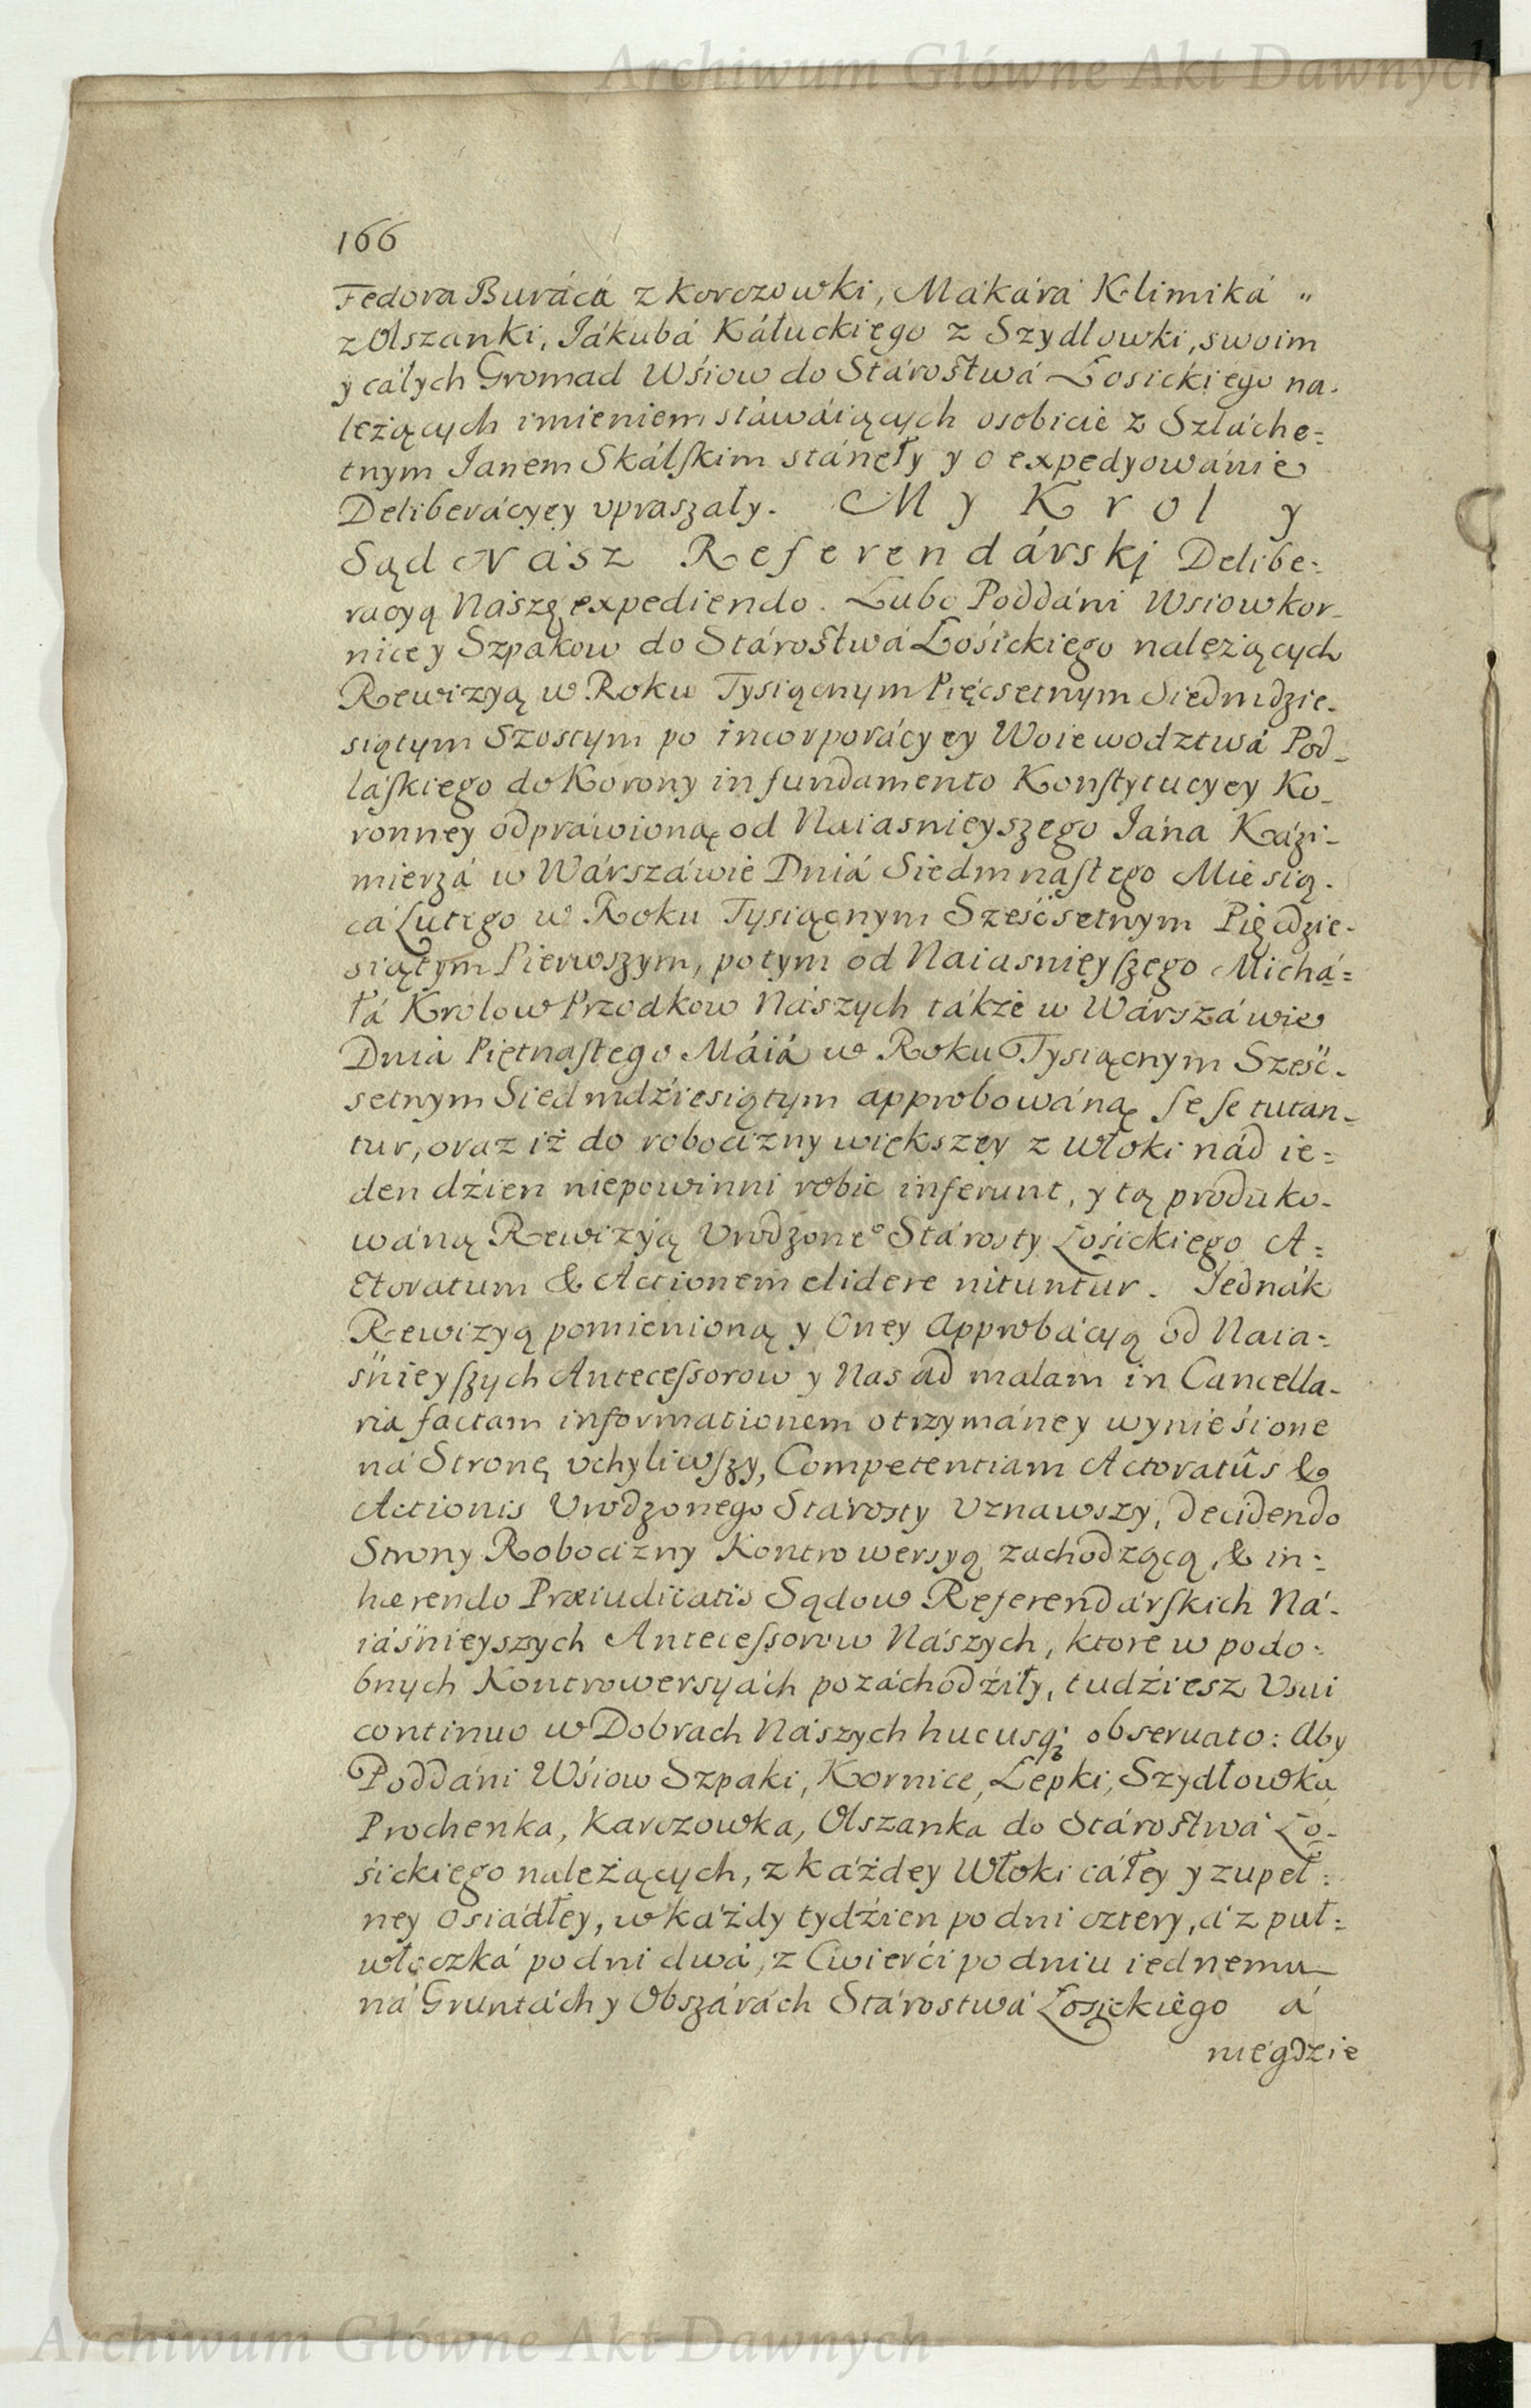 Archiwum Główne Akt Dawnych
166
Fedora Buráca z Korczowki, Makára Klimiká "
z Olszanki, Iákubá Káłuckiego z Szydłowki, swoim
y całych Gromad Wśiow do Stárostwá Łosickiego na-
leżących imieniem stáwáiących osobicie z Szláche=
tnym Ianem Skálſkim stánęły y o expedyowánie
Deliberácyey vpraszały. My Krol y
Sąd Nász Referendárskį Delibe=
racyą Nászę expediendo. Lubo Poddáni Wsiow Kor-
nice y Szpakow do Stárostwá Łośickiego należących
Rewizyą w Roku Tysiącnym Pięcsetnym Siedmdzie-
siątym Szostym po incorporácyey Woiewodztwá Pod-
láſkiego do Korony in fundamento Konſtytucyey Ko-
ronney odpráwioną od Naiasnieyszego Iána Kázi-
mierzá w Wárszáwie Dniá Siedmnaſtego Miesią-
cá Lutego w Roku Tysiącnym Sześćsetnym Pięcdzie-
siątym Pierwszym, potym od Naiasnieyſzego Michá=
łá Krolow Przodkow Nászych tákże w Wárszáwie
Dnia Piętnaſtego Máiá w Roku Tysiącnym Sześć-
setnym Siedmdźiesiątym approbowáną ſe ſe tutan-
tur, oraz iż do robocizny większey z włoki nád ie=
den dźien niepowinni robic inferunt, y tą produko-
wáną Rewizyią Vrodzone° Stárosty Łośickiego A=
ctoratum & Actionem elidere nituntur. Iednák
Rewizyą pomienioną y Oney Approbácyą od Naia=
śnieyſzych Anteceſsorow y Nas ad malam in Cancella-
ria factam informationem otrzymáney wynieśione
ná Stronę vchyliwſzy, Competentiam Actoratûs &
Actionis Vrodzonego Stárosty Vznawszy, decidendo
Strony Robocizny Kontrowersyą zachodzącą, & in=
hærendo Præiudicatis Sądow Referendárſkich Ná-
iáśnieyszych Anteceſsorow Nászych, ktore w podo=
bnych Kontrowersyách pozáchodźiły, tudźiesz Vsui
continuo w Dobrach Nászych hucusq; obseruato: Aby
Poddáni Wśiow Szpaki, Kornice, Łepki, Szydłowka
Prochenka, Karczowka, Olszanka do Stárostwá Ło-
śickiego należących, z káżdey Włoki cáłey y zupeł=
ney osiádłey, w káżdy tydźien po dni cztery, á z puł=
włoczká po dni dwá, z Cwierći po dniu iednemu
ná Gruntách y Obszárách Stárostwá Łosickiego á
niegdzie
Archiwum Główne Akt Dawnych